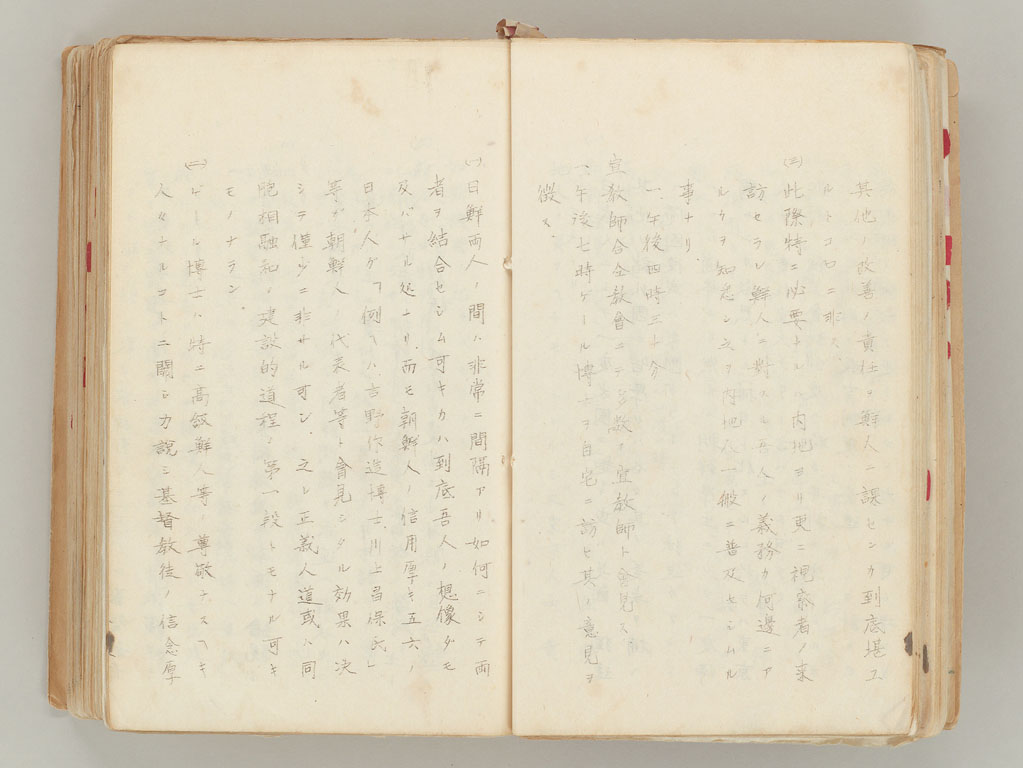 其他ノ改善ノ責任ヲ鮮人ニ課センカ到底堪ユ
ルトコロニ非ス、
(三)此際特ニ必要トスルハ内地ヨリ更ニ視察者ノ来
訪セラレ鮮人ニ対スル吾人ノ義務カ何辺ニア
ルヲ知悉シ之ヲ内地人一般ニ普及セシムル
事ナリ、
一、午後四時三十分
宣教師合全教會ニテ多数ノ宣教師ト會見ス
一、午後七時ゲール博士ヲ自宅ニ訪ヒ其ノ意見ヲ
徴ス
(一)日鮮両人ノ間ハ非常ニ間隔アリ如何ニシテ両
者ヲ結合セシム可キカハ到底吾人ノ想像ダモ
及バザル処ナリ而モ朝鮮人ノ信用厚キ五六ノ
日本人ガ「例ヘハ吉野作造博士、川上昌保氏」
等ガ朝鮮人ノ代表者等ト會見シタル効果ハ決
シテ僅少ニ非サル可シ、之レ正義人道或ハ同
胞相融和ノ建設的道程ノ第一段トモナル可キ
モノナラン。
(二)ビーシ博士ハ特ニ高級鮮人等ノ尊敬ナスヘキ
人々ナルコトニ関シ力説シ基督教徒ノ信念厚